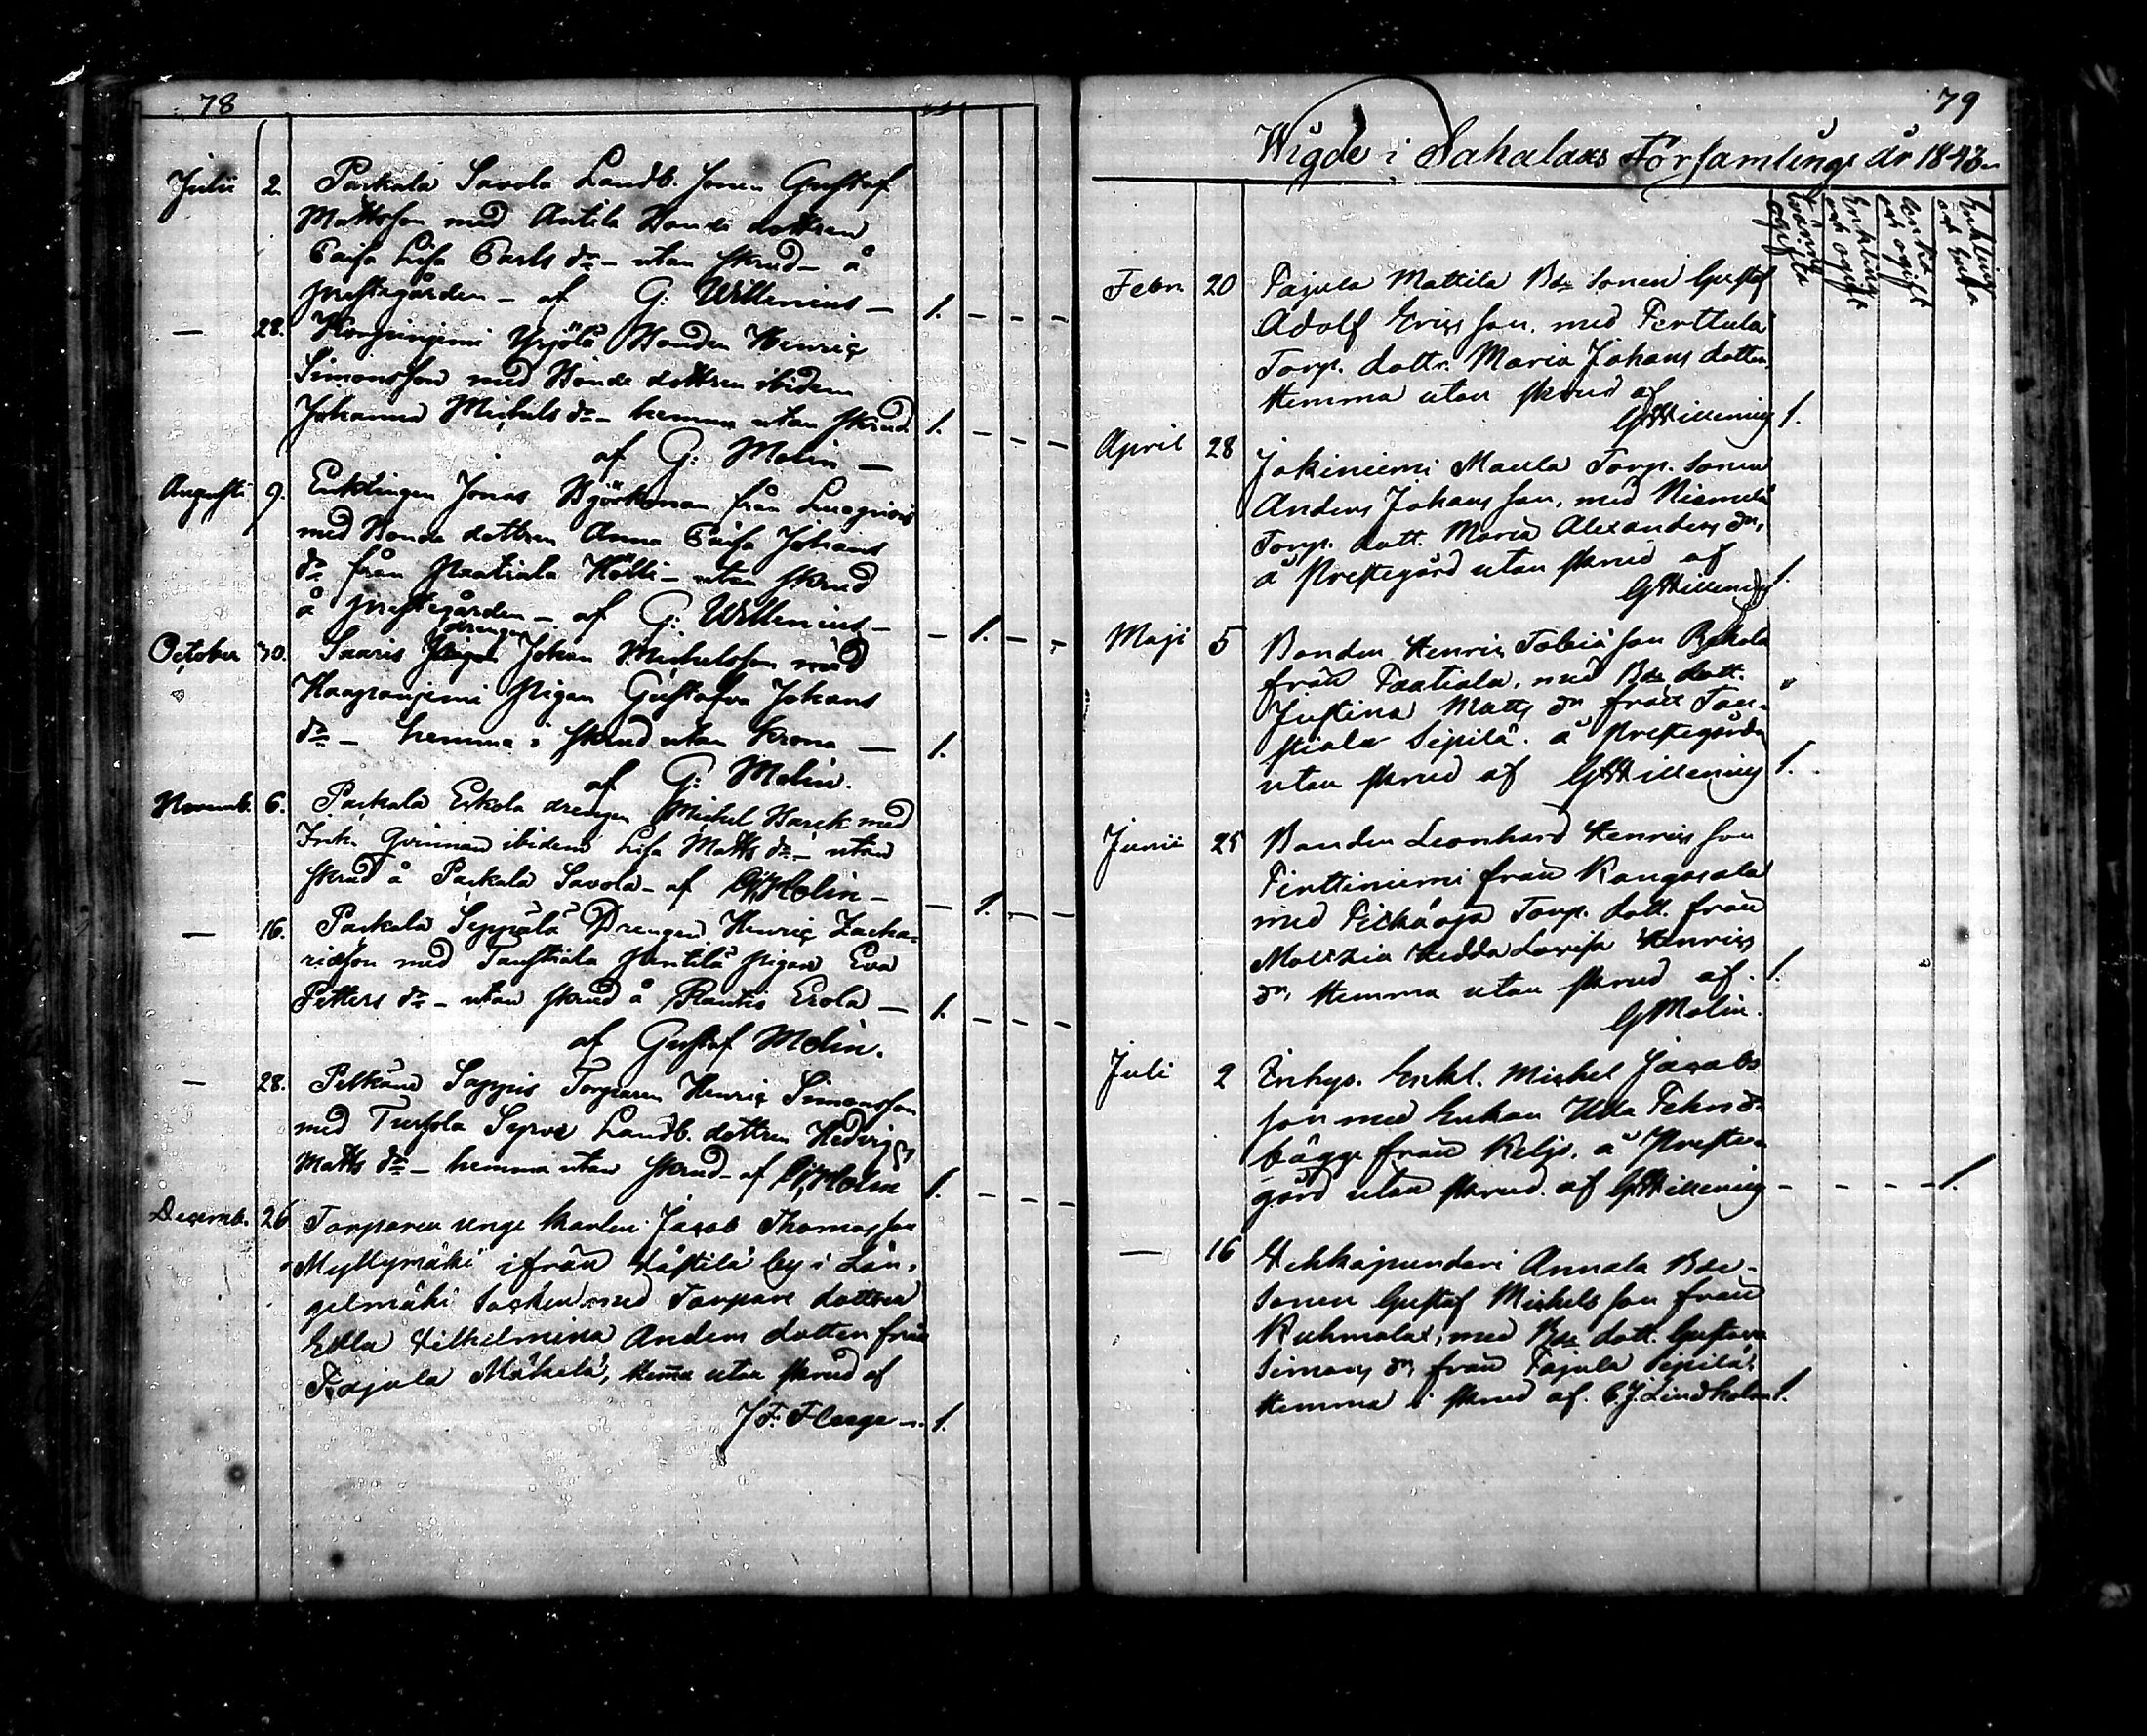 78
Julii 2. Parkala Savola Landb. sonen Gustaf
Mattsson med Antila Bonde dottren
Caisa Lisa Carls dr – utan skrud – å
prestegården – af G: Willenius – 1. – – –
— 28. Yrjölä Bonden Henric
Simonsson med Bonde dottren ibidem
Johanna Michels dr – hemma utan skrud 1. – – –
af G: Molin —
Augusti 9. Enklingen Jonas Björkman från
med Bonde dottren Anna Caisa Johans
dr från Raatiala Hölli – utan skrud
å prestegården – af G: Willenius – – 1. – –
October 30. Saaris drengen Johan Michelsson med
Haapaniemi pigan Gustafva Johans
dr – hemma i skrud utan krona — 1.
af G: Molin.
Novemb. 6. Parkala Eskola drengen Michel Barck med
Inh. Qvinnan ibidem Lisa Matts dr – utan
skrud å Parkala Savola – af G: Molin – – 1. – –
— 16. Parkala Seppälä Drengen Henric Zacha-
riæson med Taustiala Pentilä pigan Eva
Petters dr – utan skrud å Rautis Erola — 1. – – –
af Gustaf Molin.
— 28. Pelkäne Sappis Torparen Henric Simonsson
med Tursola Syrve Landb. dottren Hedvig
Matts dr – hemma utan skrud – af G: Molin 1. – – –
Decemb. 26 Torparen unge karlen Jacob Thomasson
Myllymäki ifrån Västilä by i Län-
gelmäki Socken med Torpare dottren
Ella Wilhelmina Anders dotter från
Pajula Mäkelä, hema utan skrud af
J F: 1.
79
Wigde i Sahalaks Församling år 1843
Tvänne ogifta
Enkling och ogift
Enka och ogift
Enkling och Enka
Febr. 20 Pajula Mattila Bde Sonen Gustaf
Adolf Ericsson, med Perttula
Torp. dottr. Maria Johans dotter,
Hemma utan skrud af
G Willenius 1.
April 28 Jokiniemi Maula Torp. Sonen
Anders Johansson, med Niemelä
Torp. dott. Maria Alexanders dr,
å Prestegård utan skrud af
G Willenius 1.
Maji 5 Bonden Henric Tobiæson Rekola
från Raatiala, med Bde dott.
Justina Matts dr från Tau-
stiala Sipilä. å Prestegården
utan skrud af G Willenius 1.
Junii 25 Bonden Leonhard Henricsson
Pirttiniemi från Kangasala
med Pitkäoja Torp. dott. från
Moltzia Hedda Lovisa Henrics
dr, Hemma utan skrud af. 1.
G Molin.
Juli 2 Inhys. Enkl. Michel Jacobs
son med Enkan Ulla dr
bägge från Keljo. å Preste-
gård utan skrud. af G Willenius – – – – 1.
— 16 Vehkajunderi Annala Bde-
Sonen Gustaf Michelsson från
Kuhmalax, med Bde dott. Gustava
Simons dr, från Pajula Sipilä,
Hemma i skrud af. C. J. Lindholm 1.